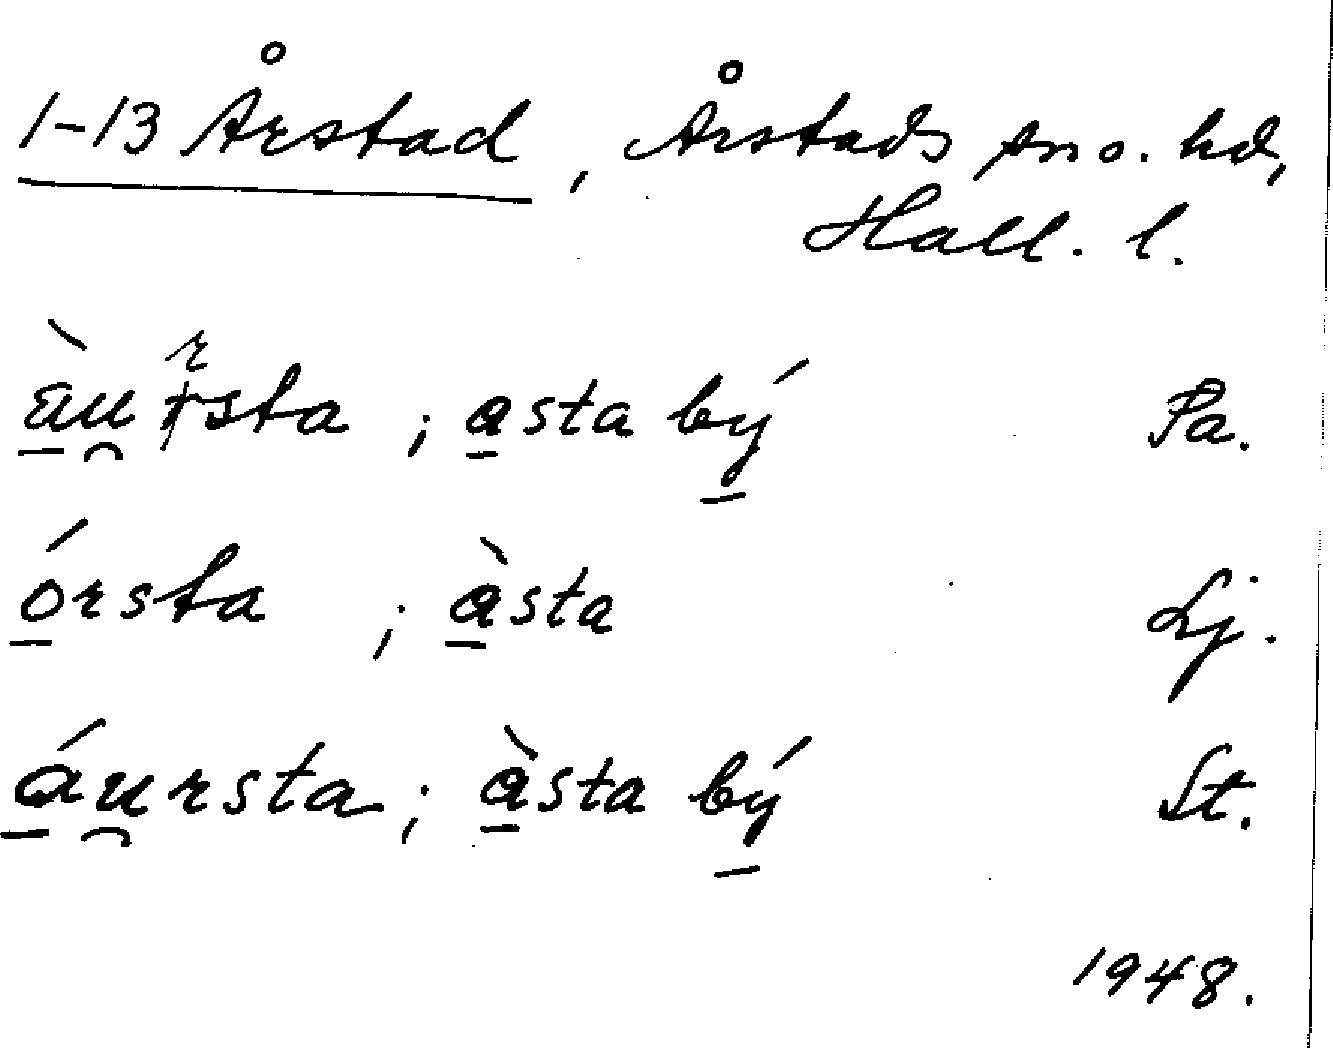 1-13 Årstad, Årstads sn o. hd,
Hall. l.
àu̯rsta ; asta bý Pa.
órsta ; àsta Lj.
áu̯rsta ; àsta bý St.
1948.